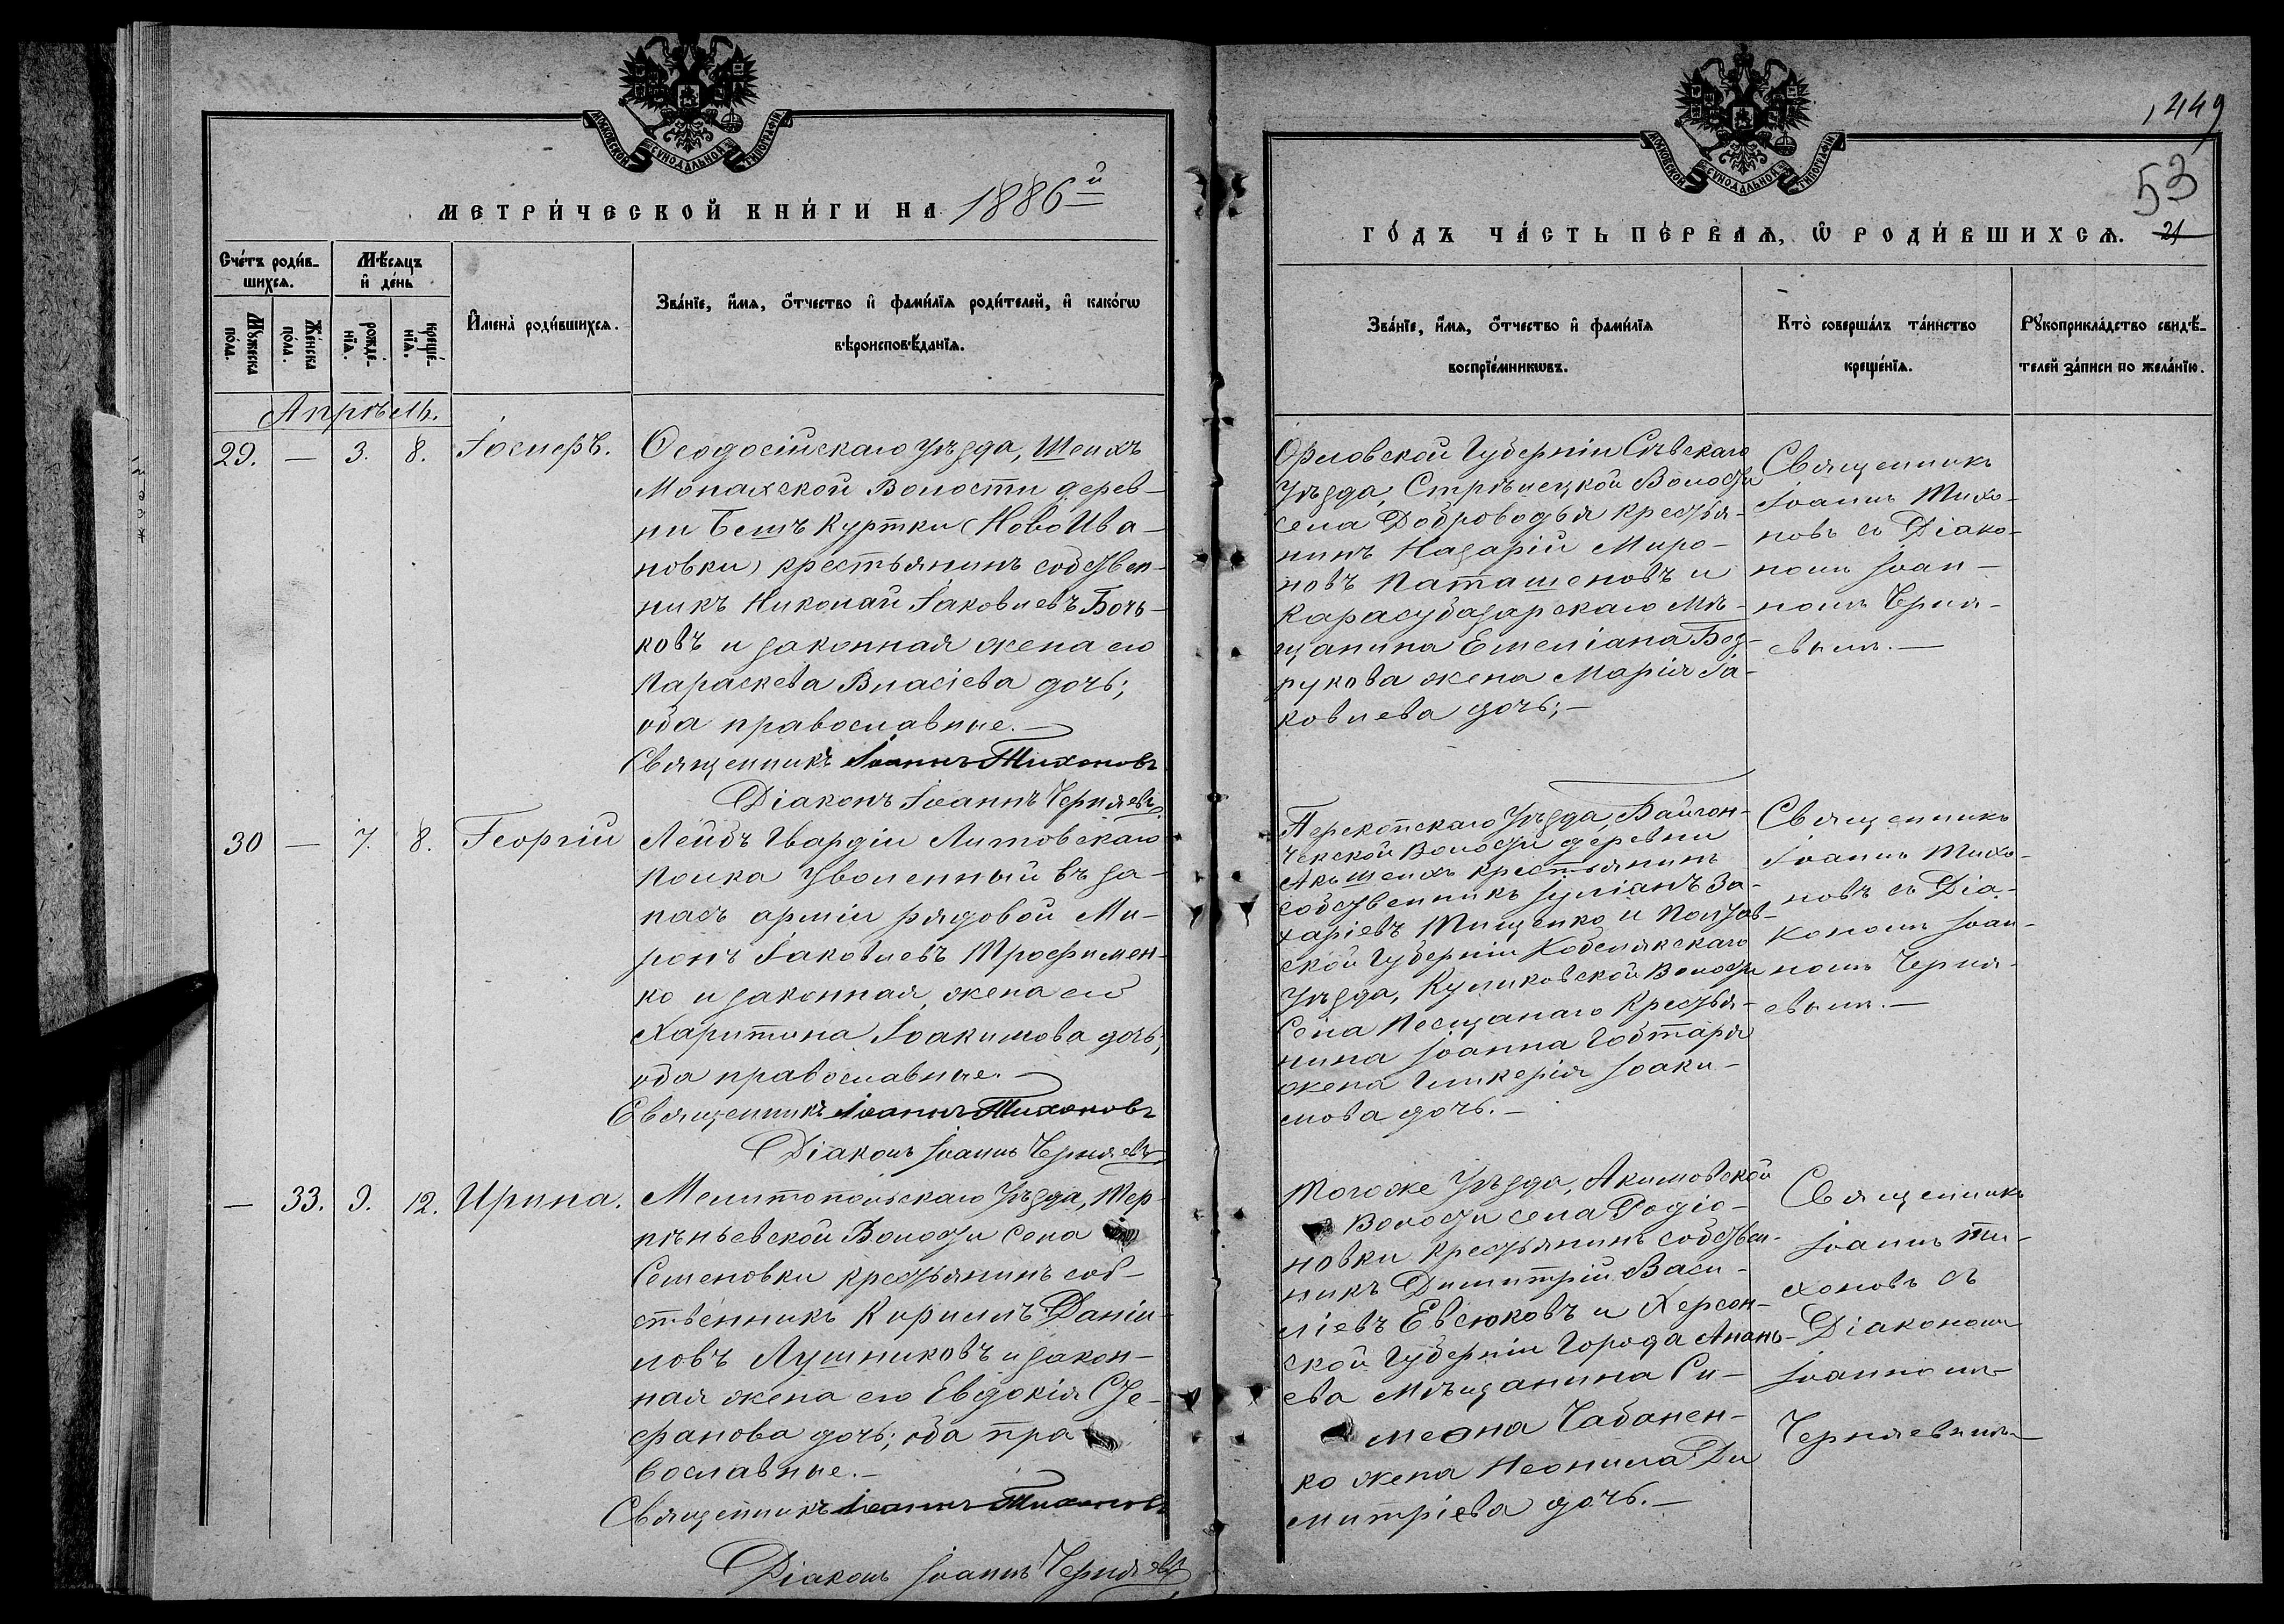 МОСКОВСКОЙ СѴНОДАЛЬНОЙ ТИПОГРАФІИ
МЕТРИ́ЧЕСКОЙ КНИ́ГИ НА 1886й
Сче́тъ роди́в-
шихся.
Мѣ́сяцъ
и҆ де́нь
Мꙋ́жеска
по́ла.
Же́нска
по́ла.
рожде́-
нїѧ.
креще́-
нїѧ.
И҆мена̀ роди́вшихсѧ.
Зва́нїе, и҆́мѧ, ѻ҆́тчество и҆ фами́лїѧ роди́телей, и҆ како́гѡ
вѣроисповѣ́данїѧ.
Апрѣль.
29. — 3. 8. Іосифъ.
Ѳеодосійскаго Уѣзда, Шеихъ
Монахской Волости дерев-
ни Бешъ Куртки (Ново Ива-
новки) крестьянинъ собствен-
никъ Николай Іаковлевъ Боч-
ковъ и законная жена его
Параскева Власіева дочь;
оба православные.—
Священникъ Іоаннъ Тихоновъ
Діаконъ Іоаннъ Черняевъ
30 — 7. 8. Георгій
Лейбъ Гвардіи Литовскаго
полка уволенный въ за-
пасъ арміи рядовой Ми-
ронъ Іаковлевъ Трофимен-
ко и законная жена его
Харитина Іоакимова дочь;
оба православные.—
Священникъ Іоаннъ Тихоновъ
Діаконъ Іоаннъ Черняевъ
— 33. 9. 12. Ирина.
Мелитопольскаго Уѣзда, Тер-
пѣньевской Волости села
Семеновки крестьянинъ соб-
ственникъ Кириллъ Даніи-
ловъ Лушниковъ и закон-
ная жена его Евдокія Сте-
фанова дочь; оба пра-
вославные.—
Священникъ Іоаннъ Тихоновъ
Діаконъ Іоаннъ Черняевъ
МОСКОВСКОЙ СѴНОДАЛЬНОЙ ТИПОГРАФІИ
449
53
21
ГО́ДЪ ЧА́СТЬ ПЕ́РВАѦ, Ѡ҆ РОДИ́ВШИХСѦ.
Зва́нїе, и҆́мѧ, ѻ҆́тчество и҆ фами́лїѧ
воспрїе́мникѡвъ.
Кто̀ соверша́лъ та́инство
креще́нїѧ.
Рꙋкоприкла́дство свидѣ́-
телей за́писи по жела́нїю.
Орловской Губерніи Сѣвскаго
Уѣзда, Стрѣлецкой Волости
села Доброводья крестья-
нинъ Назарій Миро-
новъ Паташеновъ и
Карасубазарскаго мѣ-
щанина Емеліана Без-
рукова жена Марія Іа-
ковлева дочь;—
Священникъ
Іоаннъ Тихо-
новъ съ Діако-
номъ Іоан-
номъ Черня-
евымъ.—
Перекопскаго Уѣзда, Байгон-
чекской Волости деревни
Акъшеихъ крестьянинъ
собственникъ Іуліанъ За-
харіевъ Тищенко и Полтав-
ской Губерніи Кобелякскаго
Уѣзда, Куликовской Волости
Села Песчанаго Крестья-
нина Іоанна Говтаря
жена Гликерія Іоаки-
мова дочь.—
Священникъ
Іоаннъ Тихо-
новъ съ Діа-
кономъ Іоан-
номъ Черня-
евымъ.—
Тогоже Уѣзда, Акимовской
Волости села Родіо-
новки крестьянинъ собствен-
никъ Димитрій Васи-
ліевъ Евсюковъ и Херсон-
ской Губерніи Города Анань-
ева мѣщанина Си-
меона Чабанен-
ко жена Неонила Ди
митріева дочь.—
Священникъ
Іоаннъ Ти-
хоновъ съ
Діакономъ
Іоанномъ
Черняевымъ